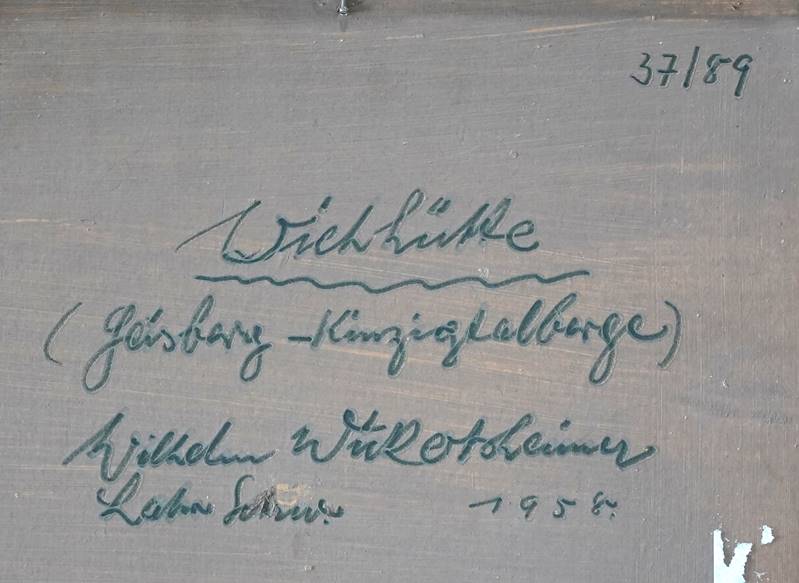 37/89
Viehhütte
(Geisberg - Kinzigtalberge)
Wilhelm Wickertsheimer
Lahr Schw. 1958.